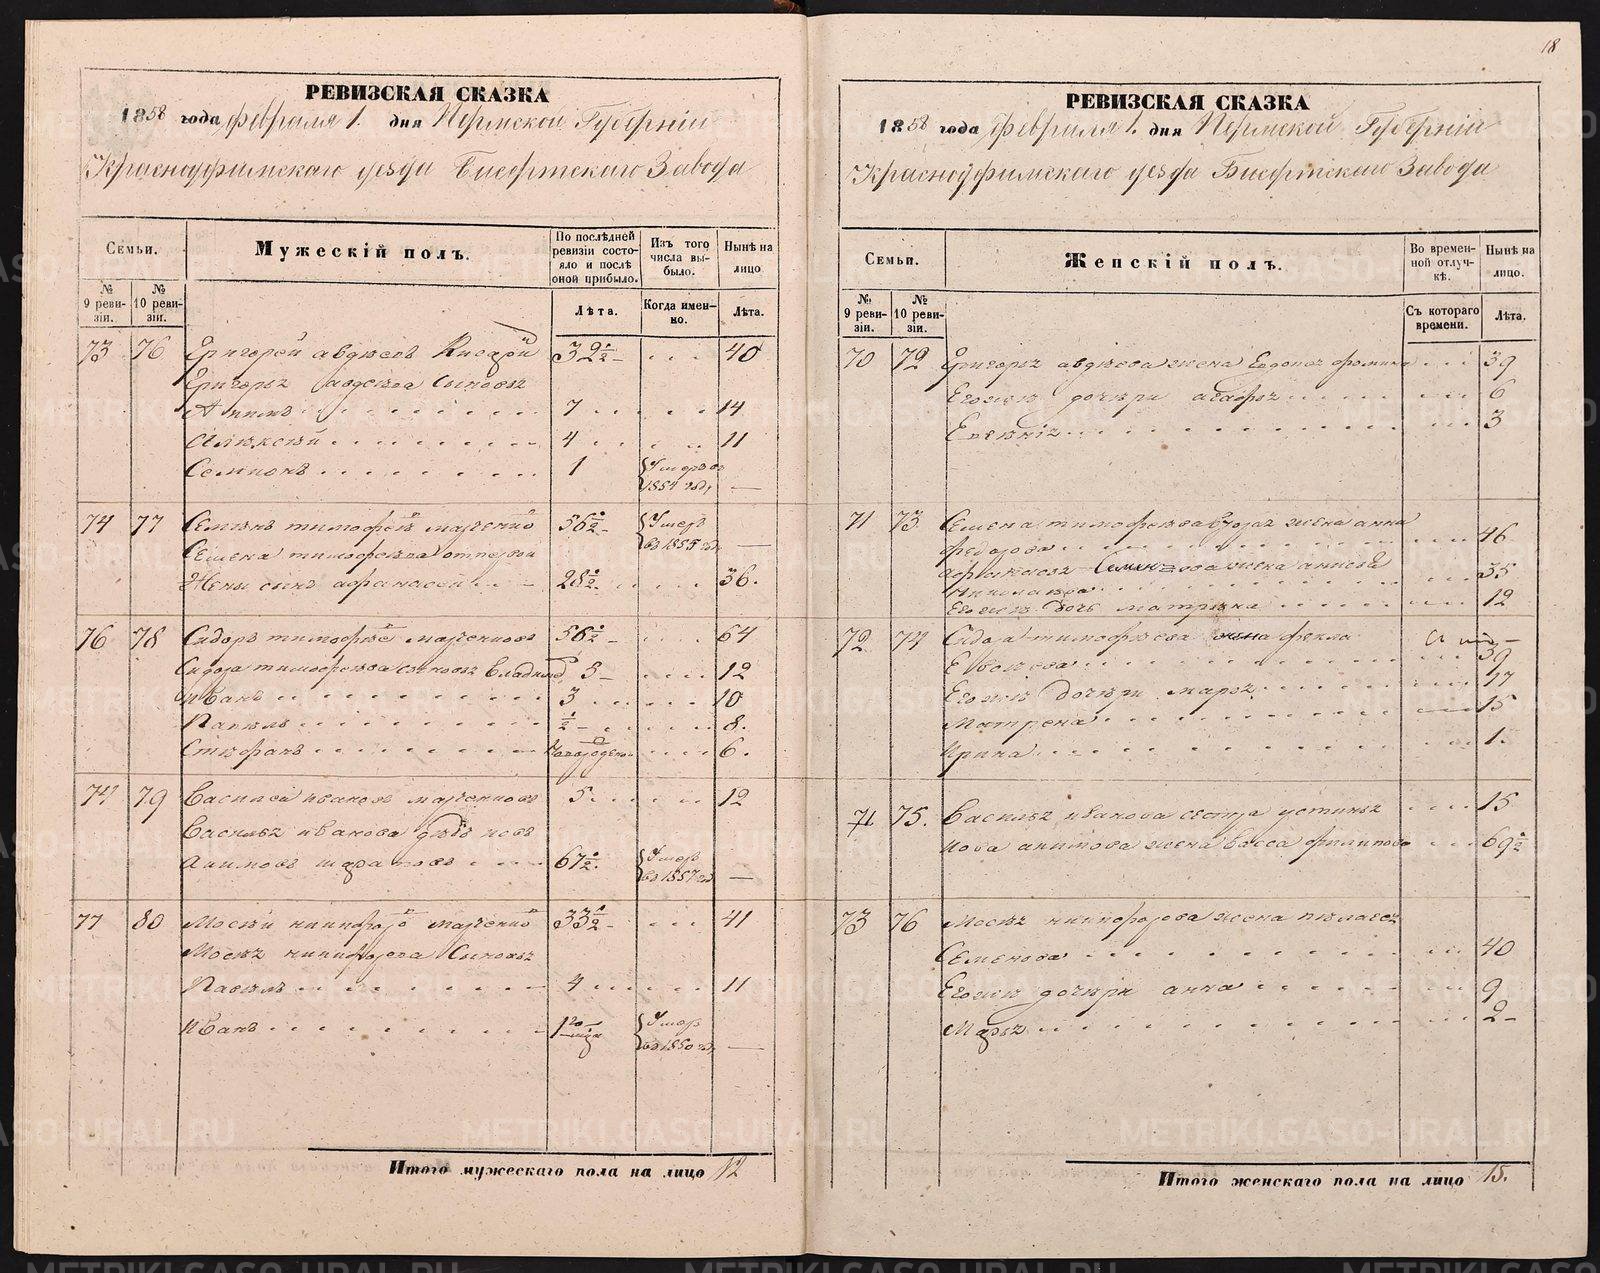 18
РЕВИЗСКАЯ СКАЗКА
1858 года февраля 1. дня Пермской Губерніи
Красноуфимскаго уезда Бисертскаго Завода
Семьи.
Мужескій полъ.
По послѣдней ревизіи состояло и послѣ оной прибыло.
Изъ того числа выбыло.
Нынѣ на лицо
№ 9 ревизіи.
№ 10 ревизіи.
Лѣта.
Когда именно.
Лѣта.
73 76 Григорей авдѣевъ 32½ 40
Григорья авдѣева сыновья
7 14
Алексѣй 4 11
Семионъ 1 Умеръ в 1854 году —
74 77 Семенъ тимофѣевъ 56½ Умеръ въ 1855 году —
Семена тимофѣева отпервой
Жены сынъ афанасей 28½ 36.
76 78 Сидоръ тимофѣевъ 56½ 64
Сидора тимофѣева сыновья Владимиръ 5 12
Иванъ 3 10
Павелъ ½ 8.
Стефанъ новорожден 6.
74 79 Василей ивановъ 5 12
Василья иванова дядя
67½. Умеръ въ 1857 году —
77 80 Мосѣй никифоровъ 33½ 41
Мосѣя никифорова Сыновья
Павелъ 4 11
Иванъ 1го Умеръ въ 1850 году —
Итого мужескаго пола на лицо 12
РЕВИЗСКАЯ СКАЗКА
1858 года февраля 1. дня Пермской Губерніи
Красноуфимскаго уезда Бисертскаго Завода
Семьи.
Женскій полъ.
Во временной отлучкѣ.
Нынѣ на лицо.
№ 9 ревизіи.
№ 10 ревизіи.
Съ котораго времени.
Лѣта.
70 72 Григорья авдѣева жена Евдокья фомина 39
Егожъ дочери агафья 6
Евгѣнія 3
71 73 Семена тимофѣева вторая жена анна
федорова 46
афанасья Семенова жена анисья
Николаева 35
Егожъ дочь матрена 12
72 74 Сидора тимофѣева жена фекла
39
Егожъ дочери марья 17
Матрена 15
Ирина 1.
71 75. Василья иванова сестра устинья 15
жена васса филипова 69½
73 76 Мосѣя никифорова жена пелагея
Семенова 40
Егожъ дочери анна 9
Марья 2
Итого женскаго пола на лицо 15.
METRIKI.GASO-URAL.RU